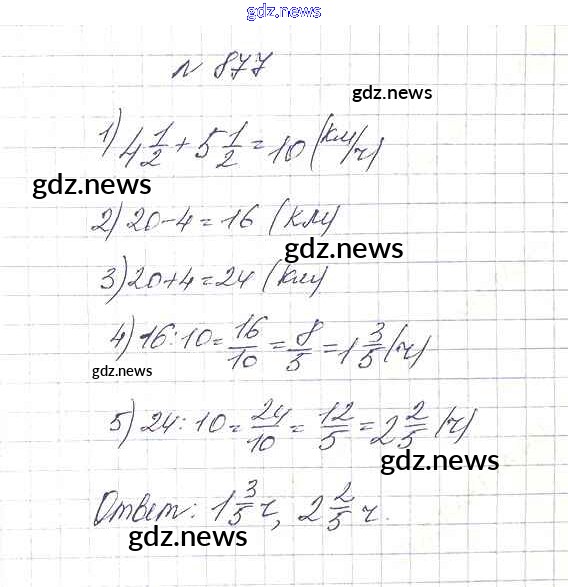 gdz.news
№ 877
gdz.news
1) 4 1/2 + 5 1/2 = 10 (км/ч)
gdz.news
2) 20 - 4 = 16 (км)
gdz.news
3) 20 + 4 = 24 (км)
4) 16 : 10 = 16/10 = 8/5 = 1 3/5 (ч)
gdz.news
5) 24 : 10 = 24/10 = 12/5 = 2 2/5 (ч)
gdz.news
Ответ: 1 3/5 ч, 2 2/5 ч.
gdz.news